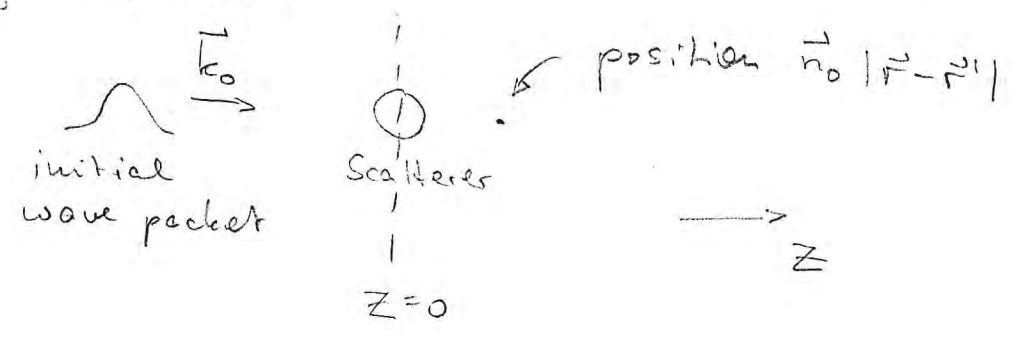 k⃗₀
position n⃗₀ |r⃗ - r⃗'|
initial
wave packet
Scatterer
Z
Z=0